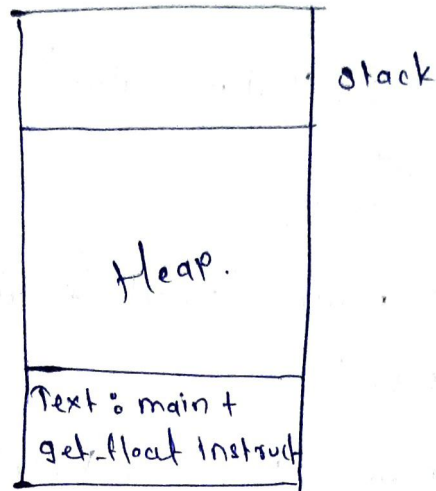 stack
Heap.
Text : main +
get_float instruct